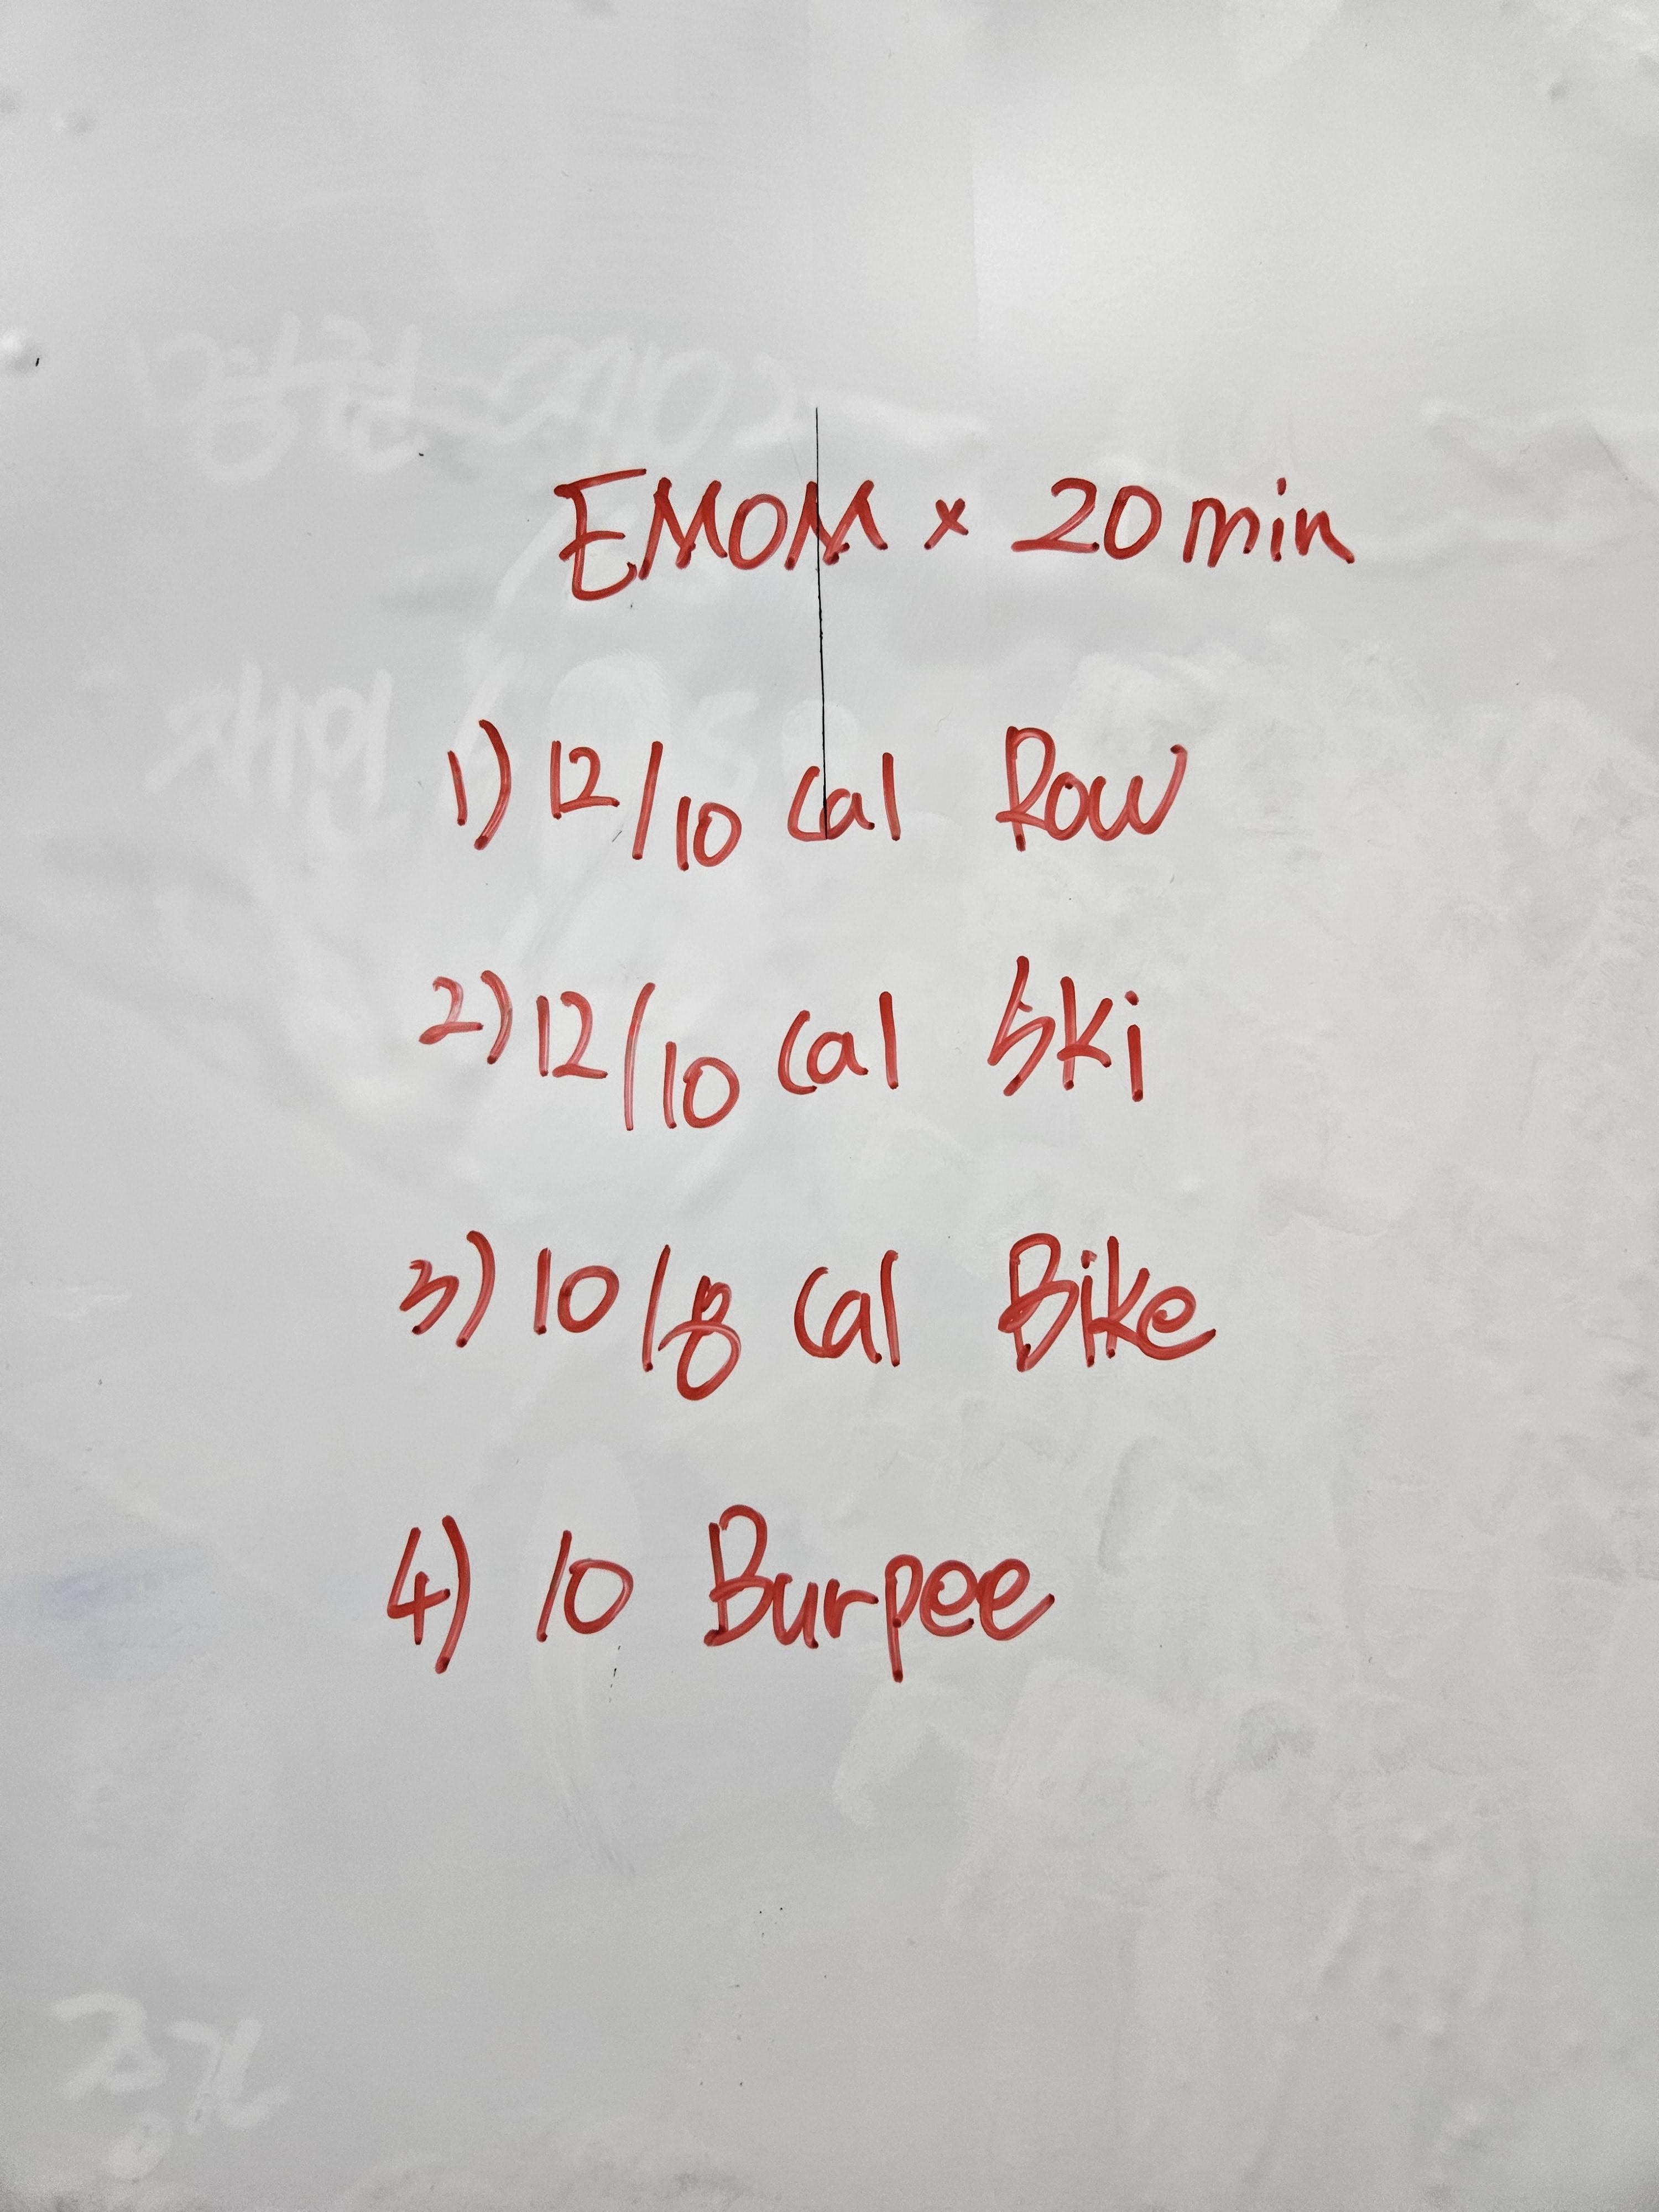 EMOM x 20 min
1) 12/10 Cal Row
2) 12/10 Cal Ski
3) 10/8 Cal Bike
4) 10 Burpee